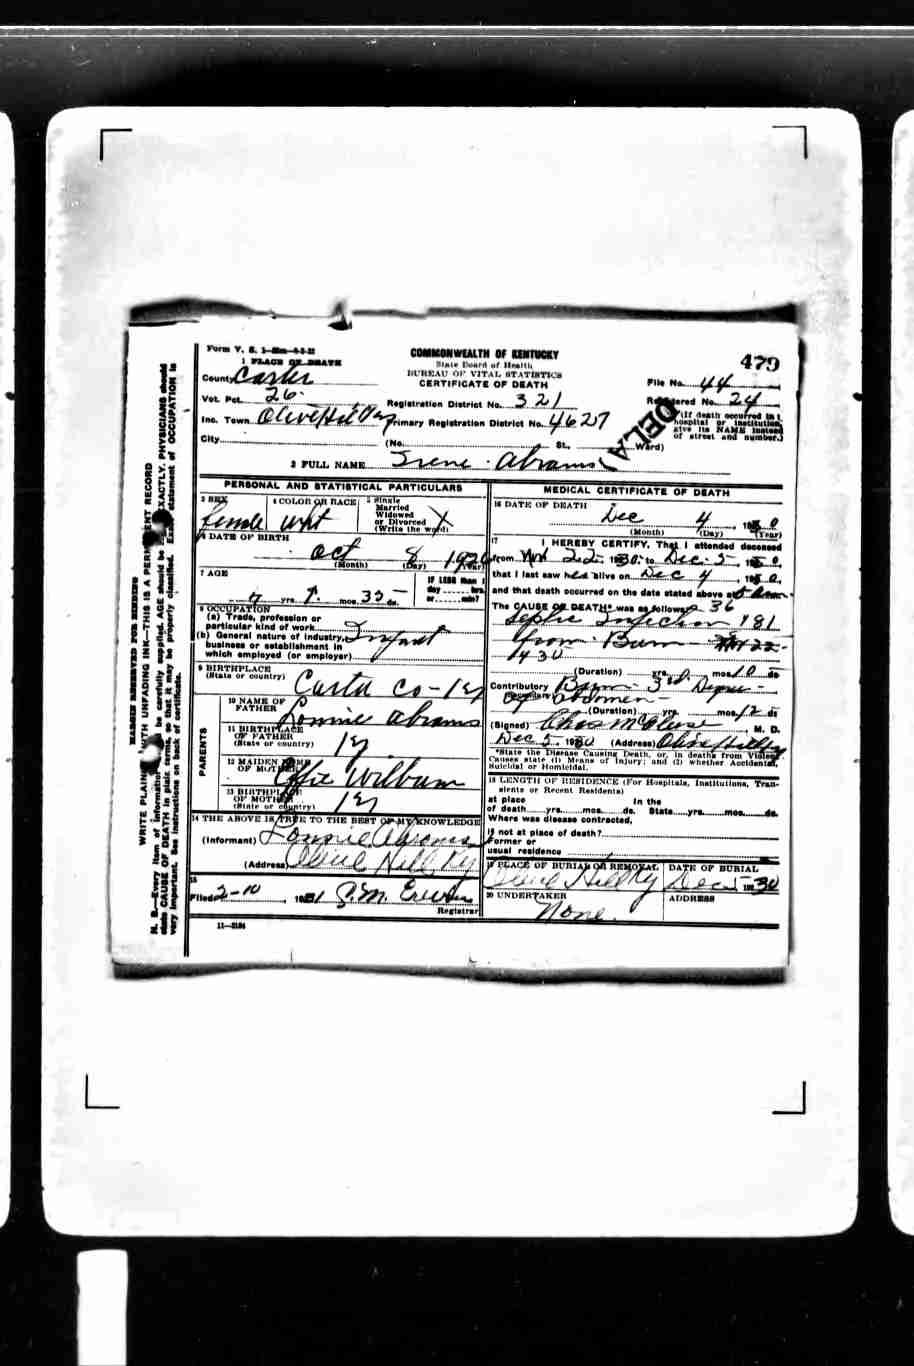 Form V. S. 1
479
COMMONWEALTH OF KENTUCKY
State Board of Health
BUREAU OF VITAL STATISTICS
CERTIFICATE OF DEATH
1 PLACE OF DEATH
County Carter
File No. 44
Vot. Pct. 26
Registration District No. 321
Registered No. 24
Inc. Town Olive Hill Ky
Primary Registration District No. 4627
(If death occurred in a hospital or institution, give its NAME instead of street and number.)
DELA
City
(No. St., Ward)
2 FULL NAME Irene Abrams
PERSONAL AND STATISTICAL PARTICULARS
3 SEX
female
4 COLOR OR RACE
wht
5 Single
Married
Widowed
or Divorced
(Write the word)
6 DATE OF BIRTH
Oct 8 1926
(Month) (Day) (Year)
7 AGE
yrs. mos. ds.
IF LESS than 1
day hrs.
or min?
8 OCCUPATION
(a) Trade, profession or
particular kind of work
(b) General nature of industry,
business or establishment in
which employed (or employer)
Infant
9 BIRTHPLACE
(State or country)
Carter Co - Ky
PARENTS
10 NAME OF
FATHER
Lonnie Abrams
11 BIRTHPLACE
OF FATHER
(State or country)
Ky
12 MAIDEN NAME
OF MOTHER
Effie Wilburn
13 BIRTHPLACE
OF MOTHER
(State or country)
Ky
14 THE ABOVE IS TRUE TO THE BEST OF MY KNOWLEDGE
(Informant) Lonnie Abrams
(Address) Olive Hill Ky
15
Filed 2-10, 1931
Registrar
11-3184
MEDICAL CERTIFICATE OF DEATH
16 DATE OF DEATH
Dec 4, 1930
(Month) (Day) (Year)
17 I HEREBY CERTIFY, That I attended deceased
from Nov 1930, to Dec. 5, 1930,
that I last saw her alive on Dec 4, 1930,
and that death occurred on the date stated above at
The CAUSE OF DEATH* was as follows: 36
Septic Infection 181
from Burn
(Duration) yrs. mos. 10 ds.
Contributory Burn 3rd Degree
(Secondary) of abdomen
(Duration) yrs. mos. 12 ds.
(Signed) Chas M M. D.
Dec 5, 1930 (Address) Olive Hill Ky
*State the Disease Causing Death, or, in deaths from Violent
Causes state (1) Means of Injury; and (2) whether Accidental,
Suicidal or Homicidal.
18 LENGTH OF RESIDENCE (For Hospitals, Institutions, Transients or Recent Residents)
At place In the
of death yrs. mos. ds. State yrs. mos. ds.
Where was disease contracted,
if not at place of death?
Former or
usual residence
19 PLACE OF BURIAL OR REMOVAL
Olive Hill Ky
DATE OF BURIAL
Dec 5 1930
20 UNDERTAKER
None
ADDRESS
MARGIN RESERVED FOR BINDING
WRITE PLAINLY WITH UNFADING INK—THIS IS A PERMANENT RECORD
N. B.—Every item of information be carefully supplied. AGE should be EXACTLY. PHYSICIANS should
state CAUSE OF DEATH in plain terms, so that it may be properly classified. Exact statement of OCCUPATION is
very important. See instructions on back of certificate.